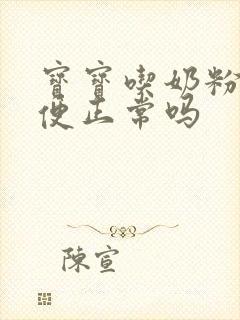 寶寶喫奶粉
便正常吗
陳宣